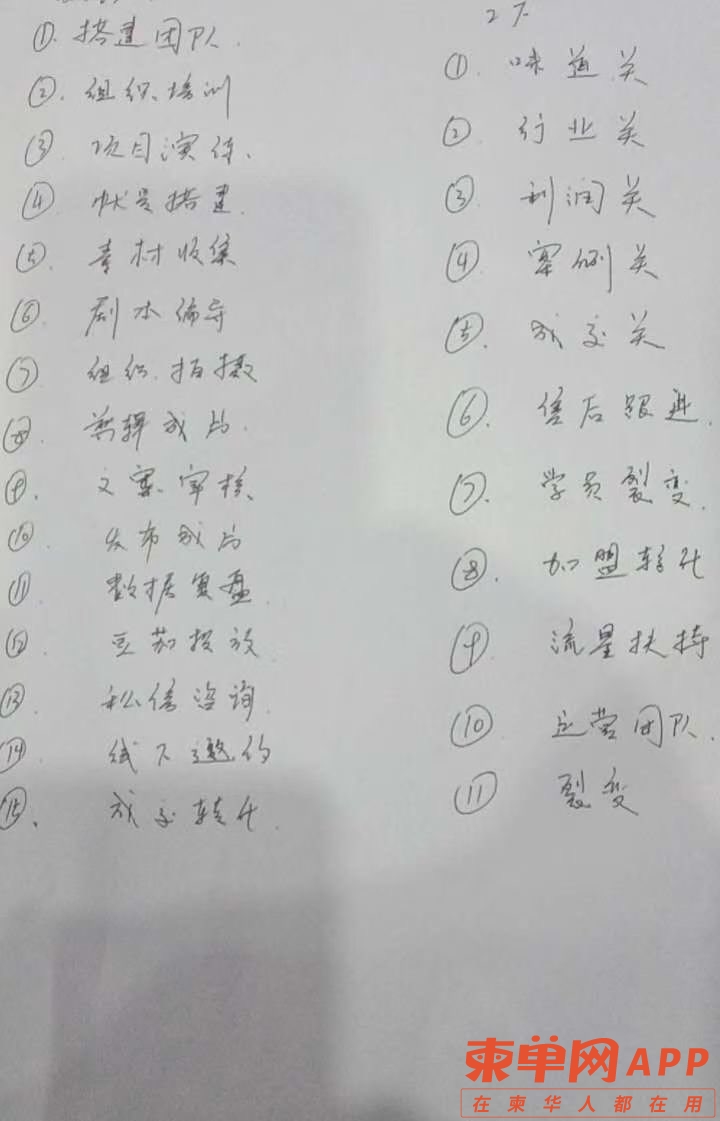 ①. 搭建团队.
②. 组织.培训
③. 项目演练.
④. 帐号搭建.
⑤. 素材收集
⑥. 剧本编导
⑦. 组织.拍摄
⑧. 剪辑成片.
⑨. 文案.审核
⑩. 发布成片
⑪. 数据复盘.
⑫. 豆荚投放.
⑬. 私信咨询.
⑭. 线下邀约
⑮. 成交转化.
①. 味道关
②. 行业关
③. 利润关
④. 案例关
⑤. 成交关
⑥. 售后跟进.
⑦. 学员裂变.
⑧. 加盟转化
⑨. 流量扶持
⑩. 运营团队.
⑪ 裂变
柬单网APP
在柬华人都在用